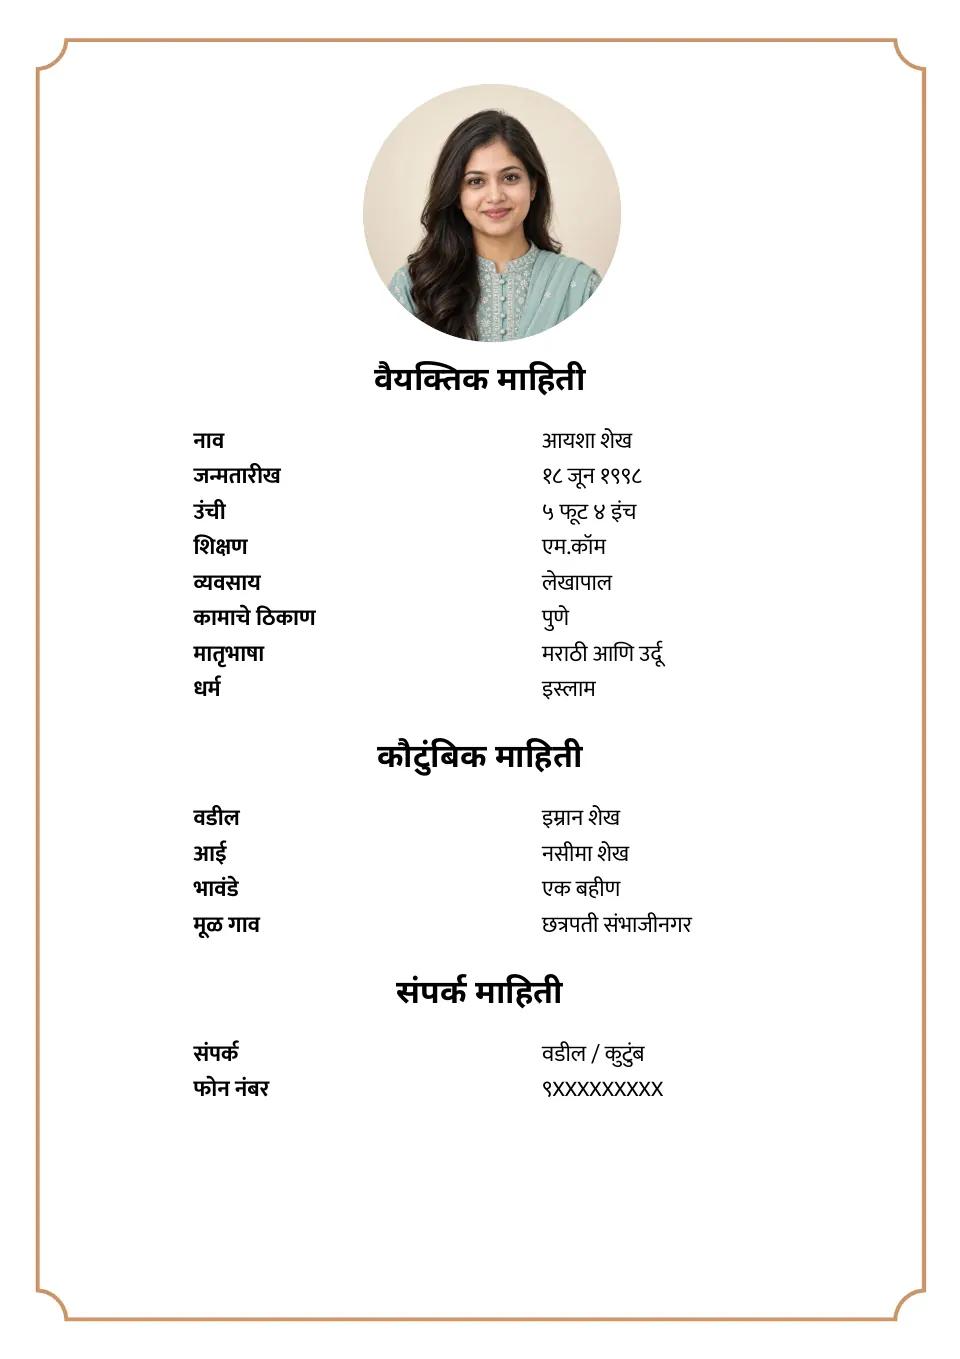 वैयक्तिक माहिती
नाव आयशा शेख
जन्मतारीख १८ जून १९९८
उंची ५ फूट ४ इंच
शिक्षण एम.कॉम
व्यवसाय लेखापाल
कामाचे ठिकाण पुणे
मातृभाषा मराठी आणि उर्दू
धर्म इस्लाम
कौटुंबिक माहिती
वडील इम्रान शेख
आई नसीमा शेख
भावंडे एक बहीण
मूळ गाव छत्रपती संभाजीनगर
संपर्क माहिती
संपर्क वडील / कुटुंब
फोन नंबर ९XXXXXXXXX